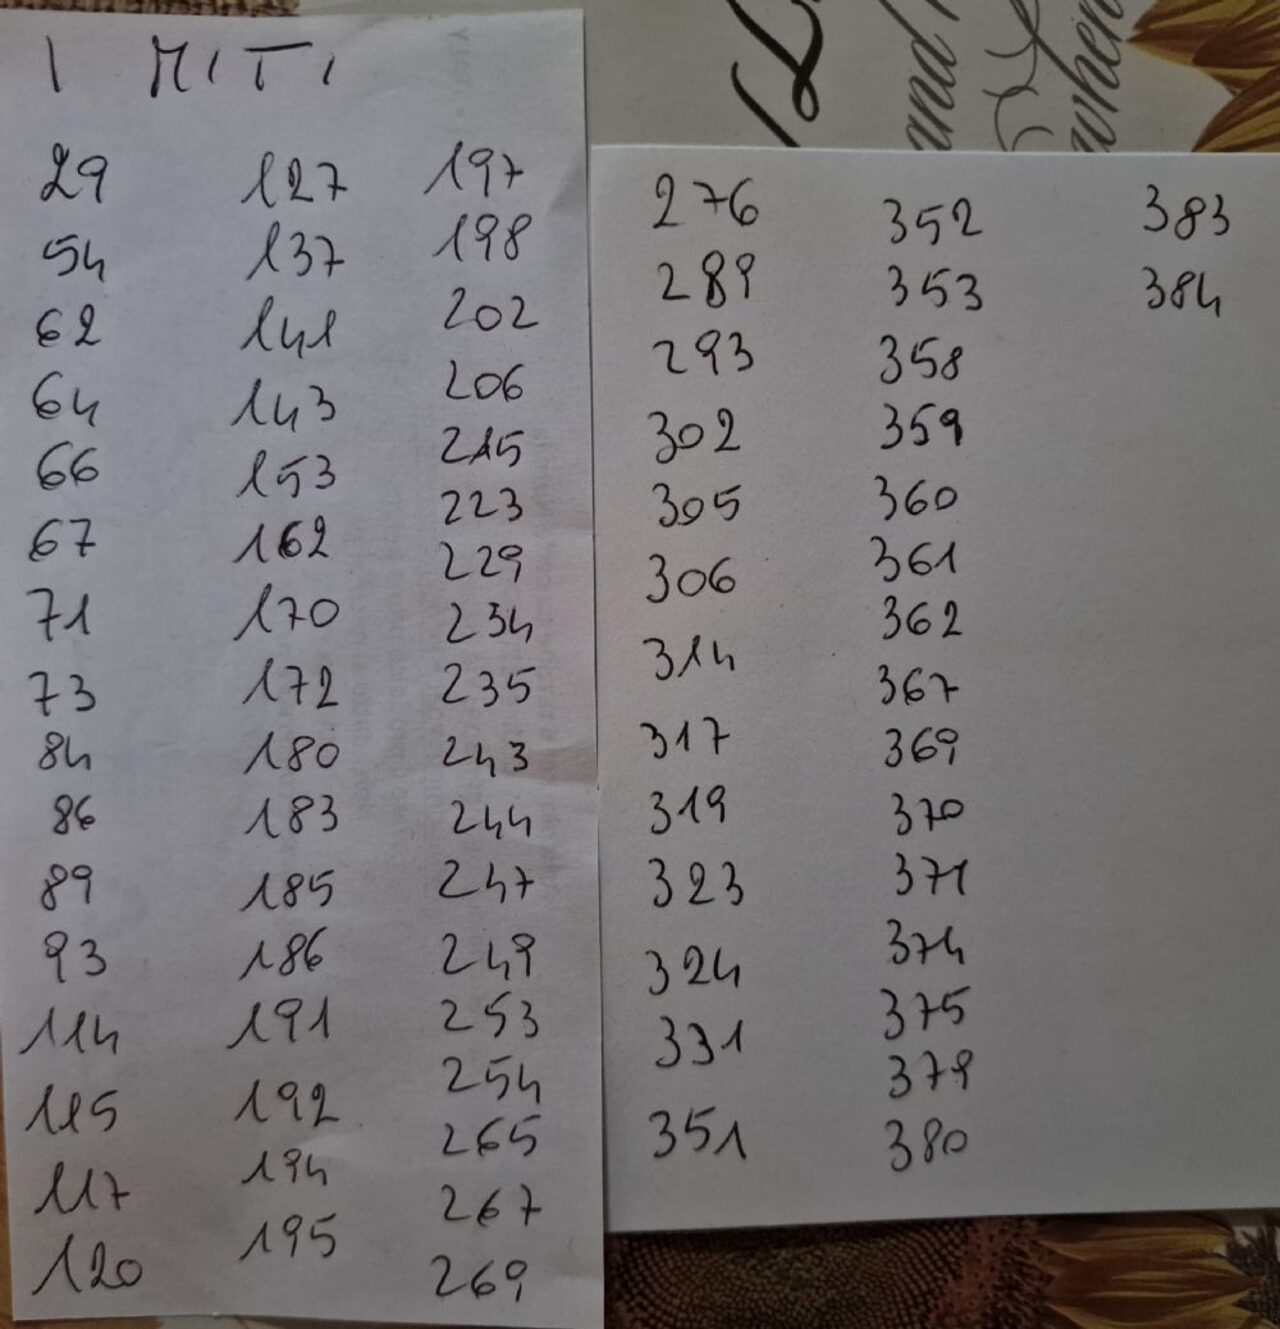 I MITI
29
54
62
64
66
67
71
73
84
86
89
93
114
115
117
120
127
137
141
143
153
162
170
172
180
183
185
186
191
192
194
195
197
198
202
206
215
223
229
234
235
243
244
247
249
253
254
265
267
269
276
289
293
302
305
306
314
317
319
323
324
331
351
352
353
358
359
360
361
362
367
369
370
371
374
375
379
380
383
384
and
when